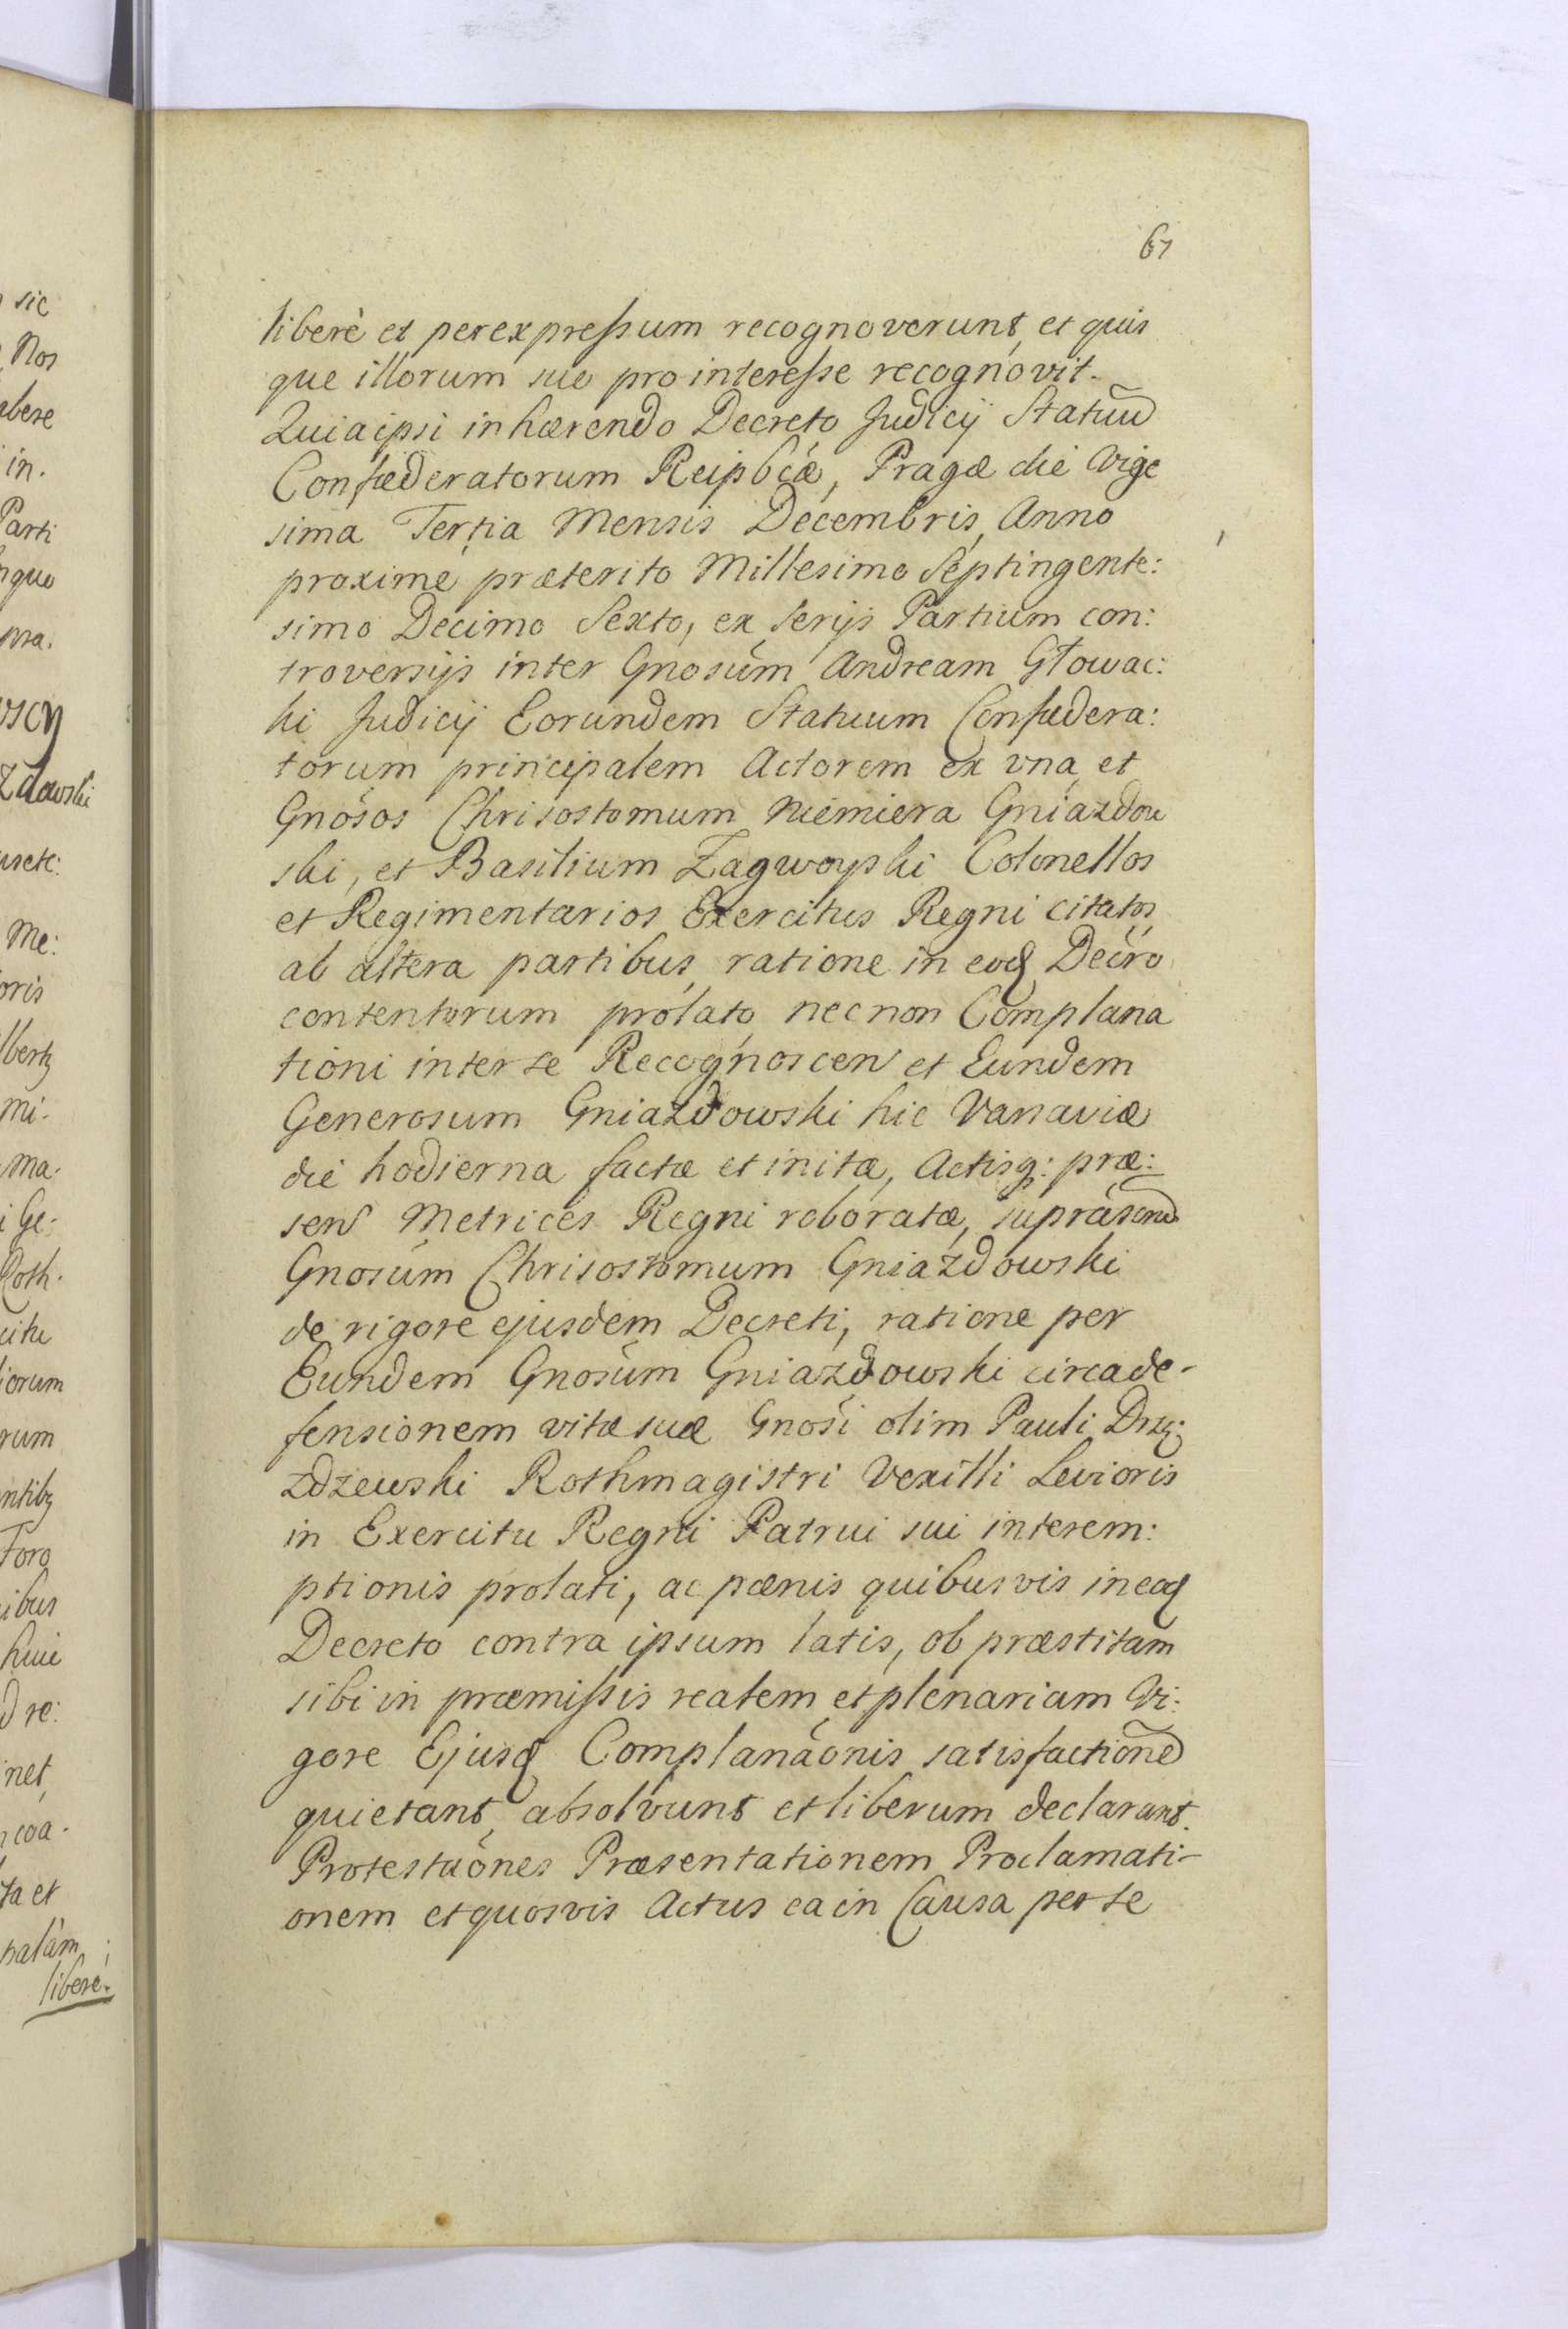 67
liberè et per expressum recognoverunt, et quis
que illorum suo pro interesse recognovit.
Quia ipsi inhærendo Decreto Judicij Statuũ
Confæderatorum Reipbcæ, Pragæ die Vige
sima Tertia Mensis Decembris, Anno
proxime præterito Millesimo Septingente:
simo Decimo Sexto, ex serijs Partium con:
troversijs inter Gnosum Andream Głowac:
ki Judicij Eorundem Statuum Confædera:
torum principalem Actorem ex vna, et
Gnosos Chrisostomum Niemiera Gniazdow
ski, et Basilium Zagwoyski Colonellos
et Regimentarios Exercitus Regni citatos
ab altera partibus, ratione in eod Decro
contentorum prolato necnon Complana
tioni inter se Recognoscen et Eundem
Generosum Gniazdowski hic Varsaviæ
die hodierna factæ et initæ, Actisq: præ:
sen Metrices Regni roboratæ,
Gnosum Chrisostomum Gniazdowski
de rigore ejusdem Decreti, ratione per
Eundem Gnosum Gniazdowski circa de-
fensionem vitæ suæ Gnosi olim Pauli Drzę:
zdzewski Rothmagistri Vexilli Levioris
in Exercitu Regni Patrui sui interem:
ptionis prolati, ac pænis quibusvis in eod
Decreto contra ipsum latis, ob præstitam
sibi in præmissis realem et plenariam Vi:
gore Ejusd Complanaonis satisfactionẽ
quietant, absolvunt et liberum declarant.
Protestaones Præsentationem Proclamati-
onem et quosvis Actus ea in Causa per se
sic
Nos
in.
Parti
zdowski
Me:
oris
mi-
ma.
Ge:
Roth.
iorum
rum
Foro
ibus
huic
re:
net,
coa-
ta et
palàm
liberè.